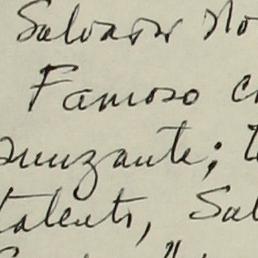 Salvador No
Famoso c
punzante; t
talento, Sal